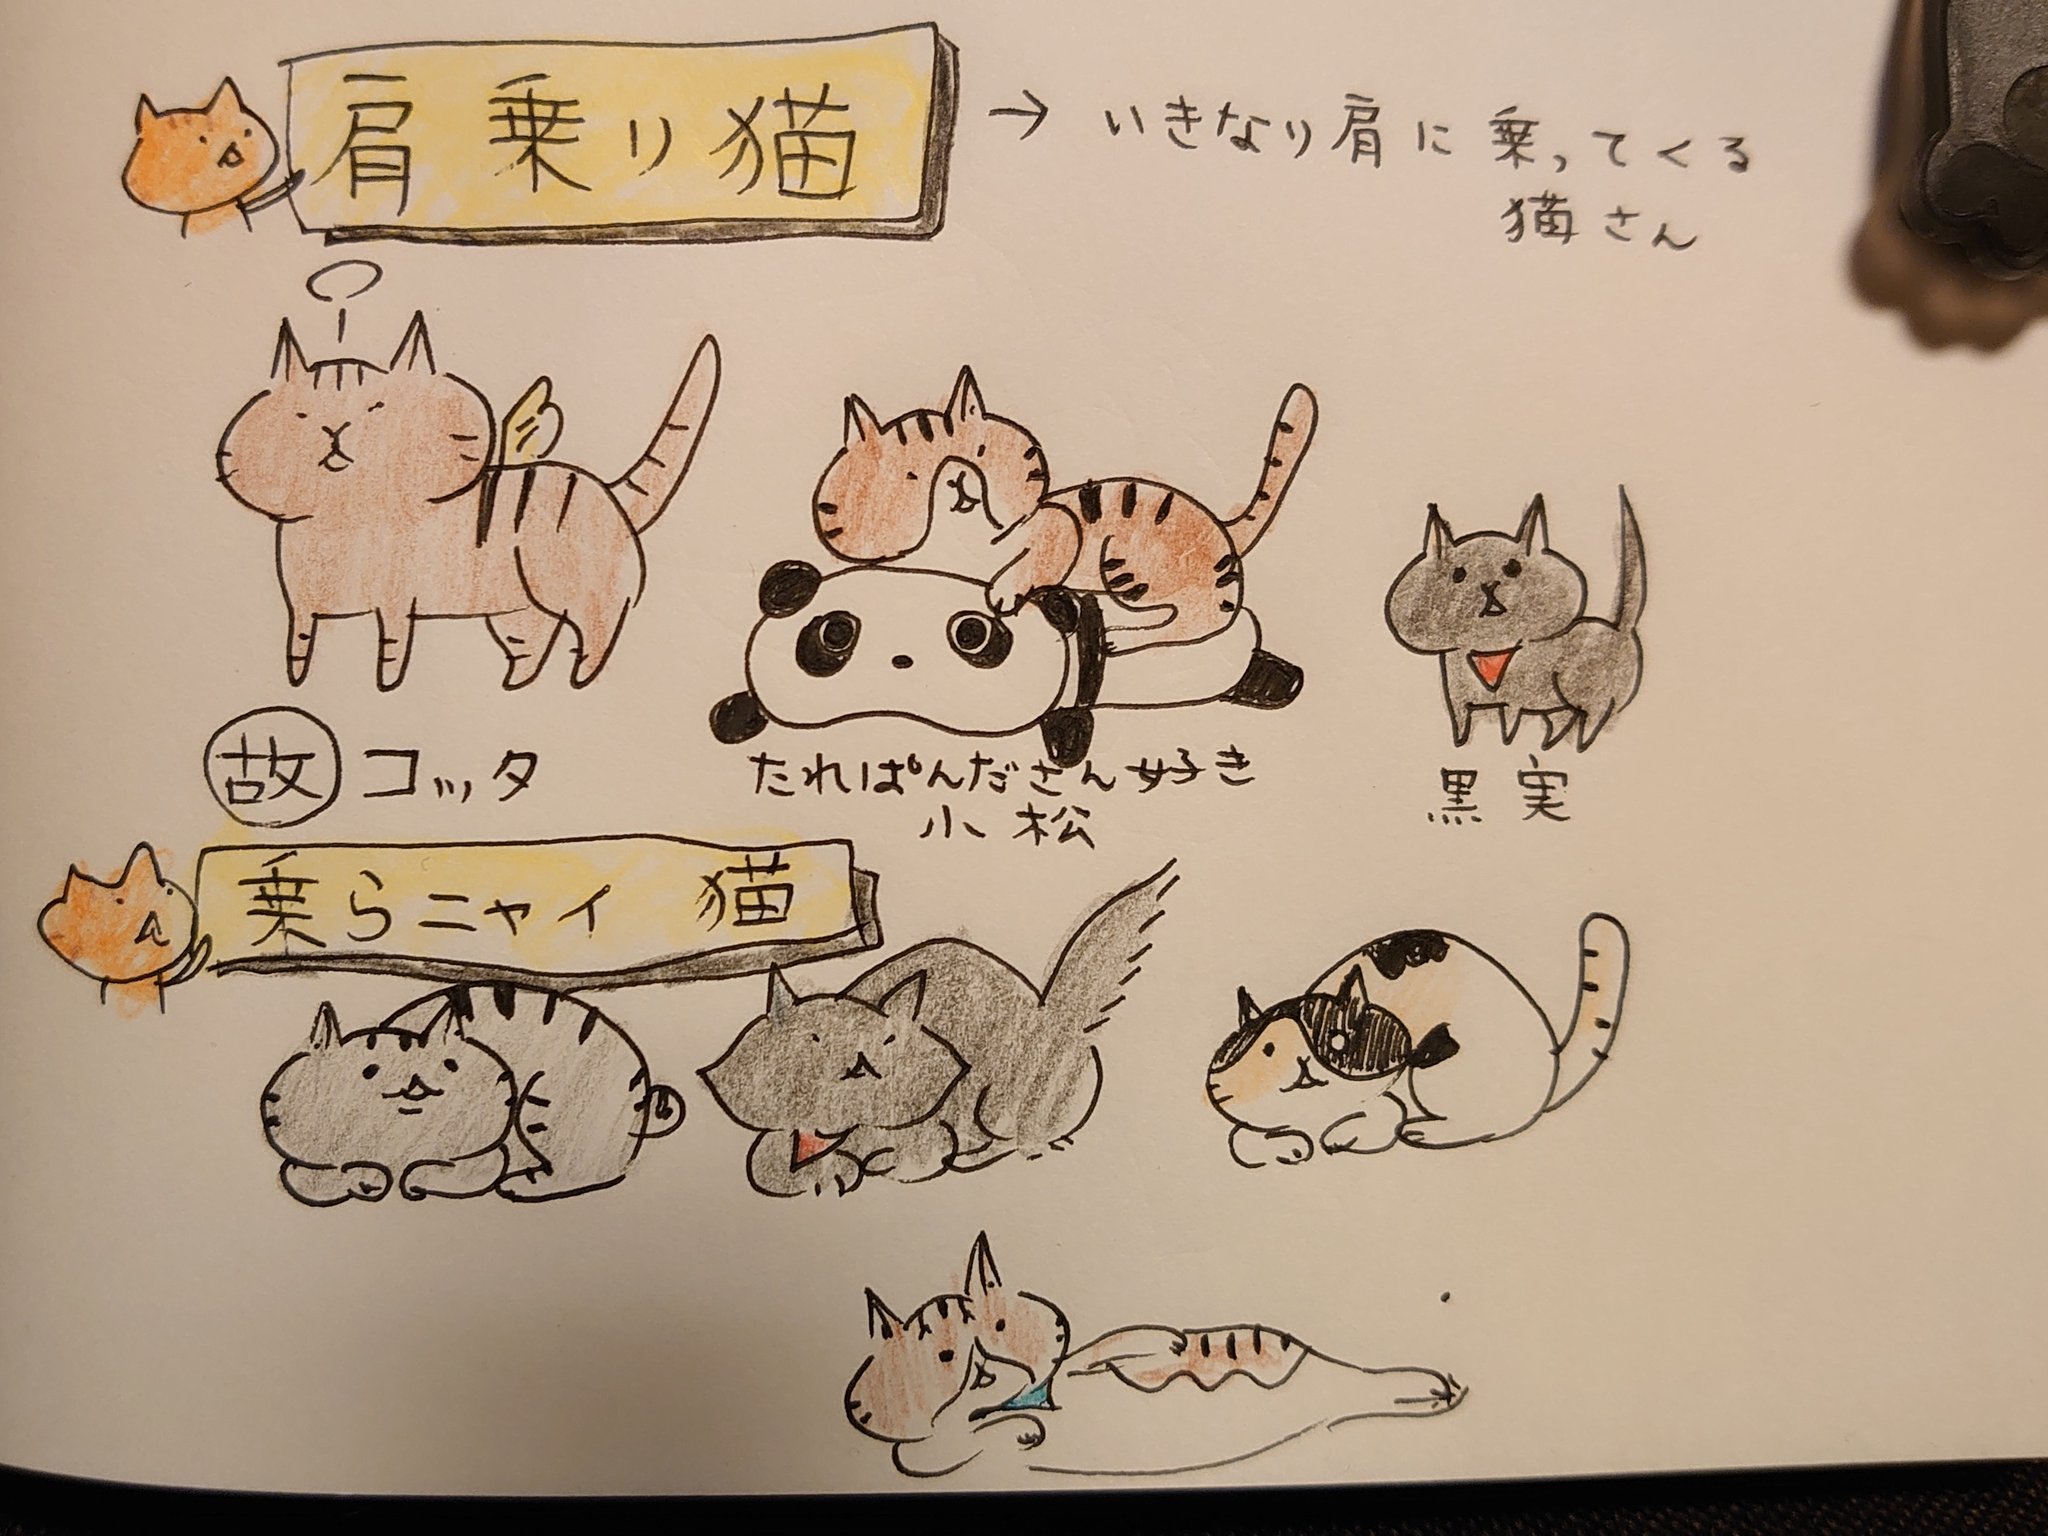 肩乗り猫
→ いきなり肩に乗ってくる
猫さん
故 コッタ
たれぱんださん好き
小松
黒実
乗らニャイ 猫